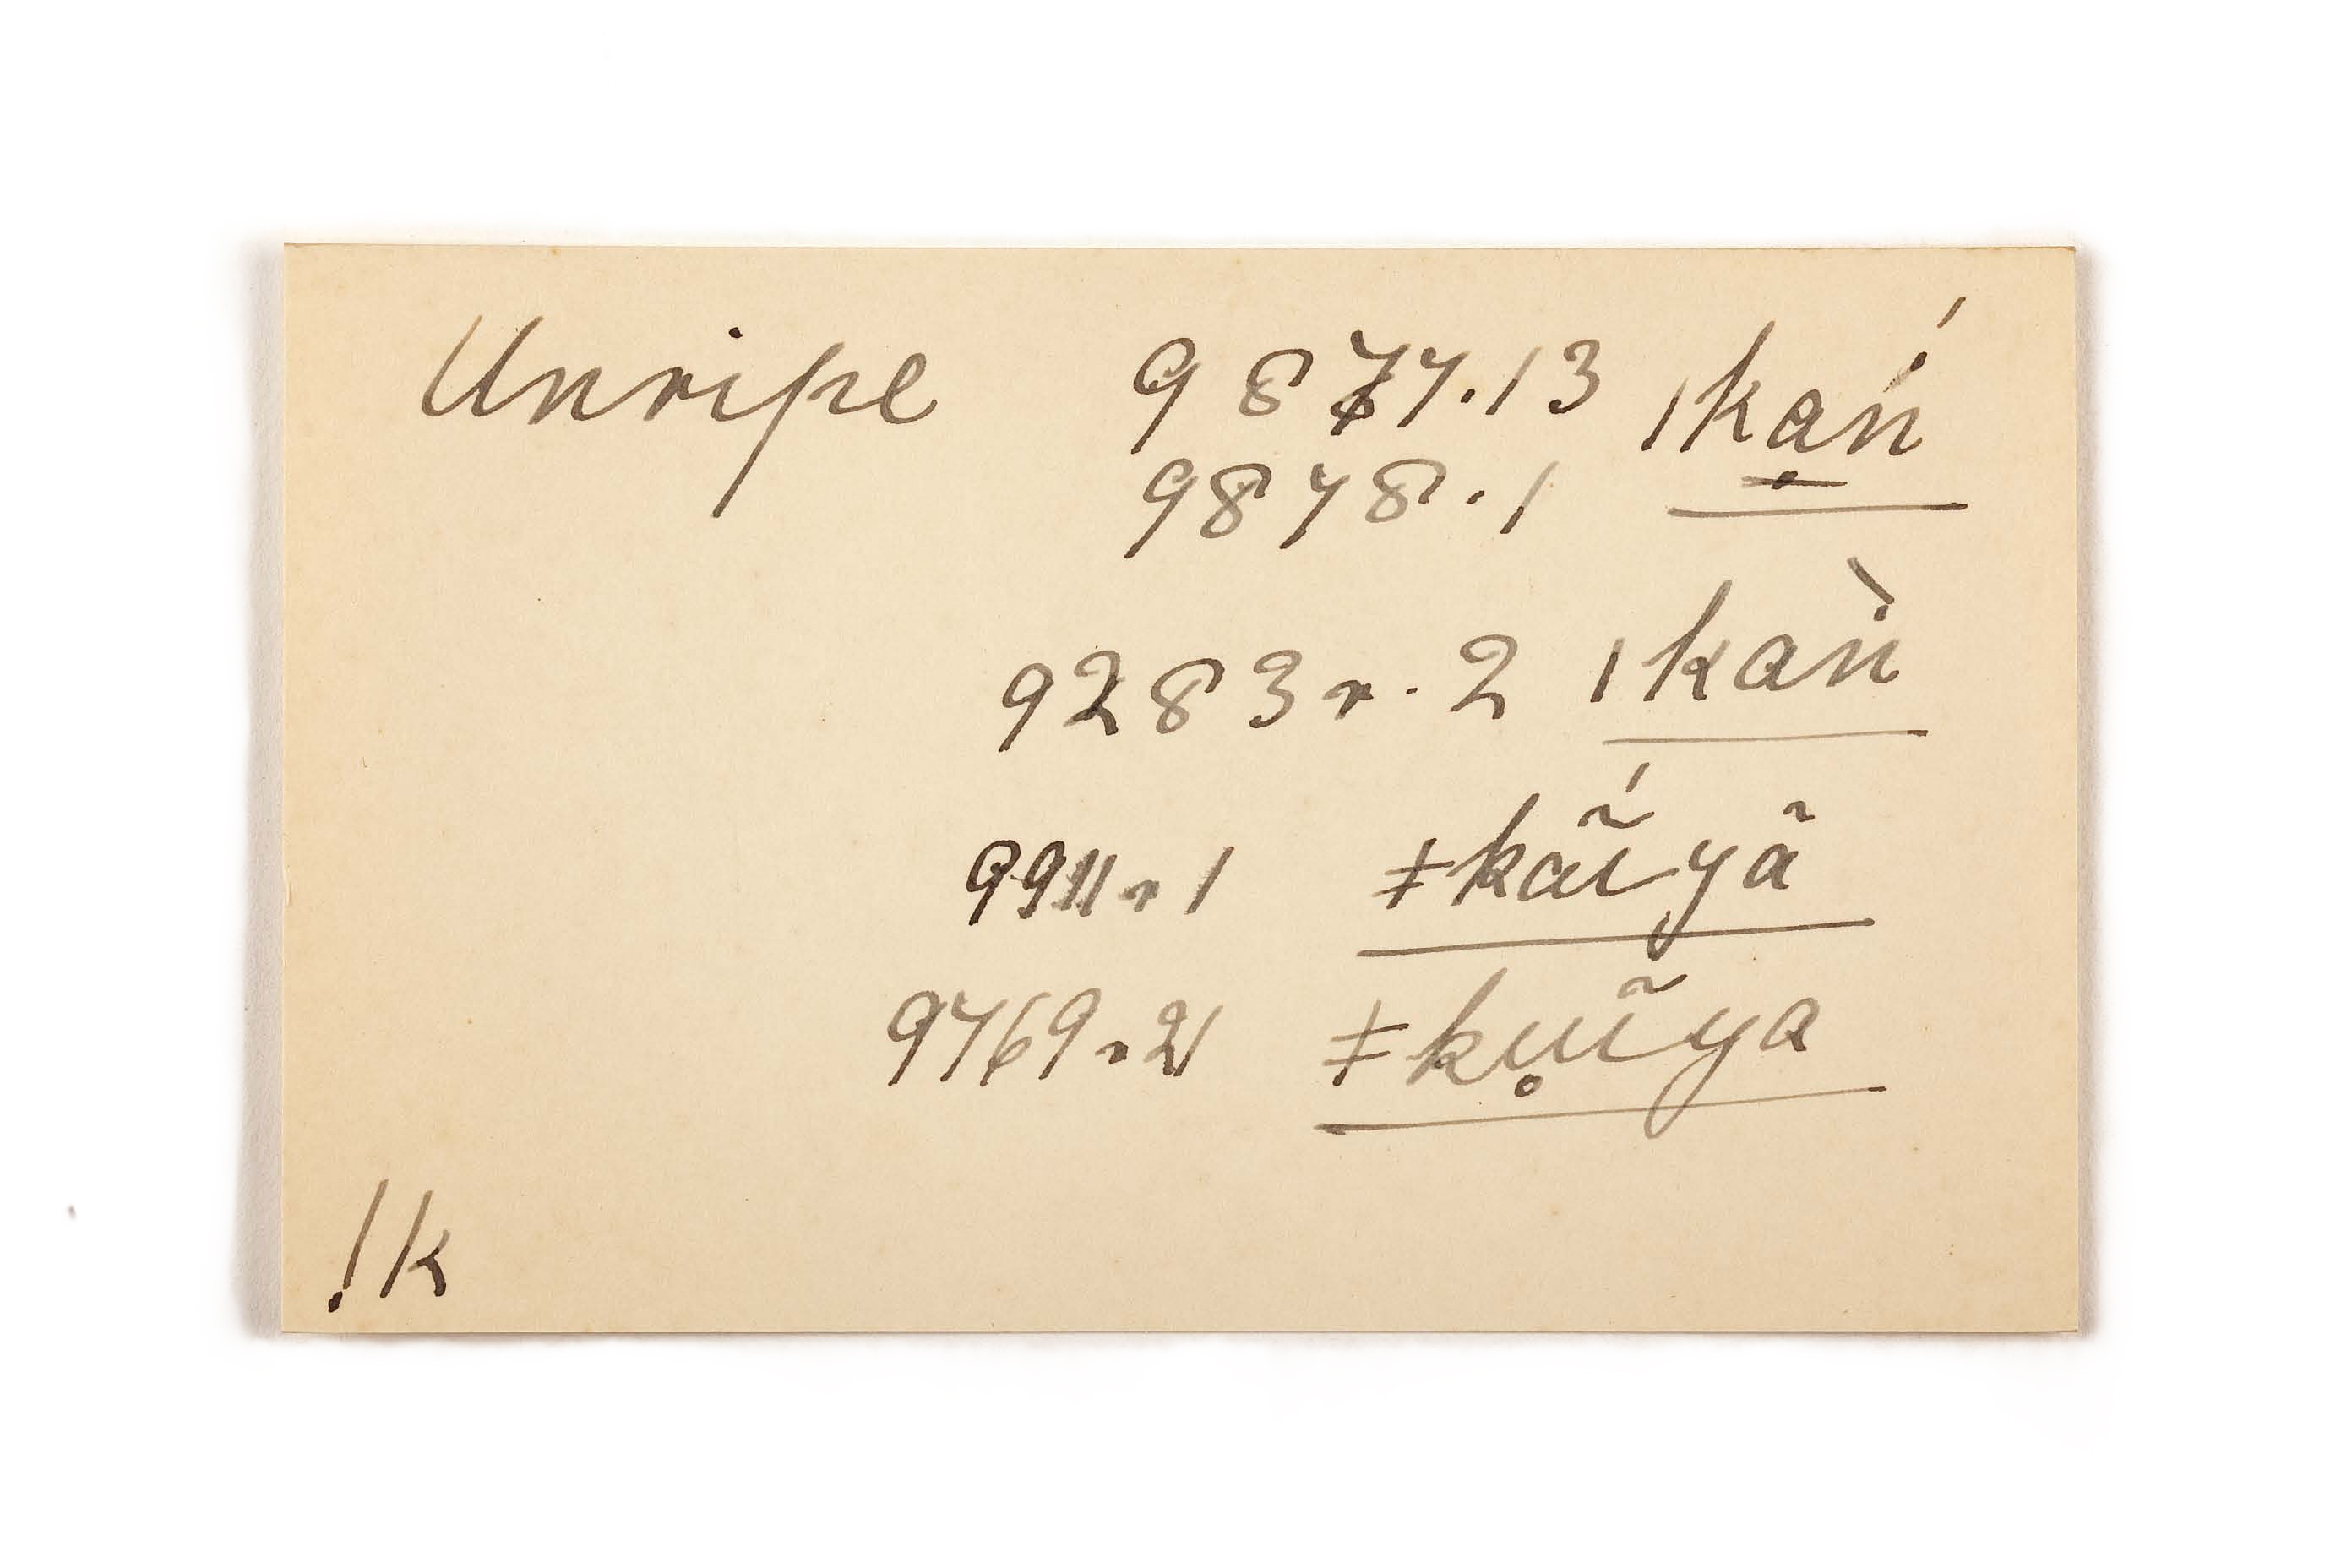 Unripe 9877.13 ǀkạ̱ṅ́
9878.1
9283r.2 ǀkaṅ̀
9911r1 ǂkã́ĩyã
9769r21 ǂkụĩya
!k